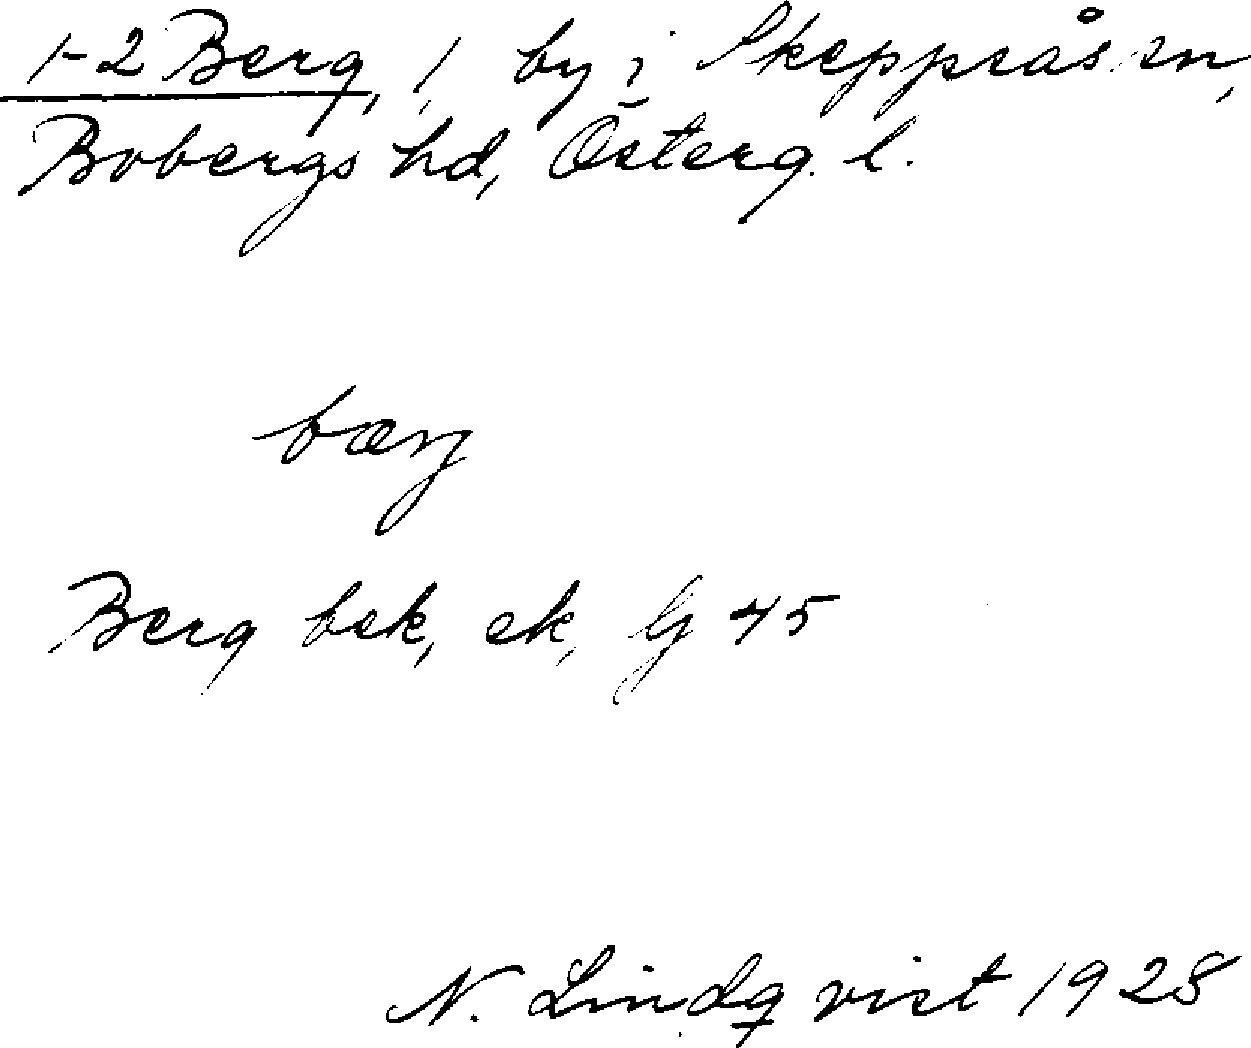 1-2 Berg, 1, by i Skeppsås sn,
Bobergs hd, Österg. l.
bærj
Berg bek, ek, G 45
N. Lindqvist 1928